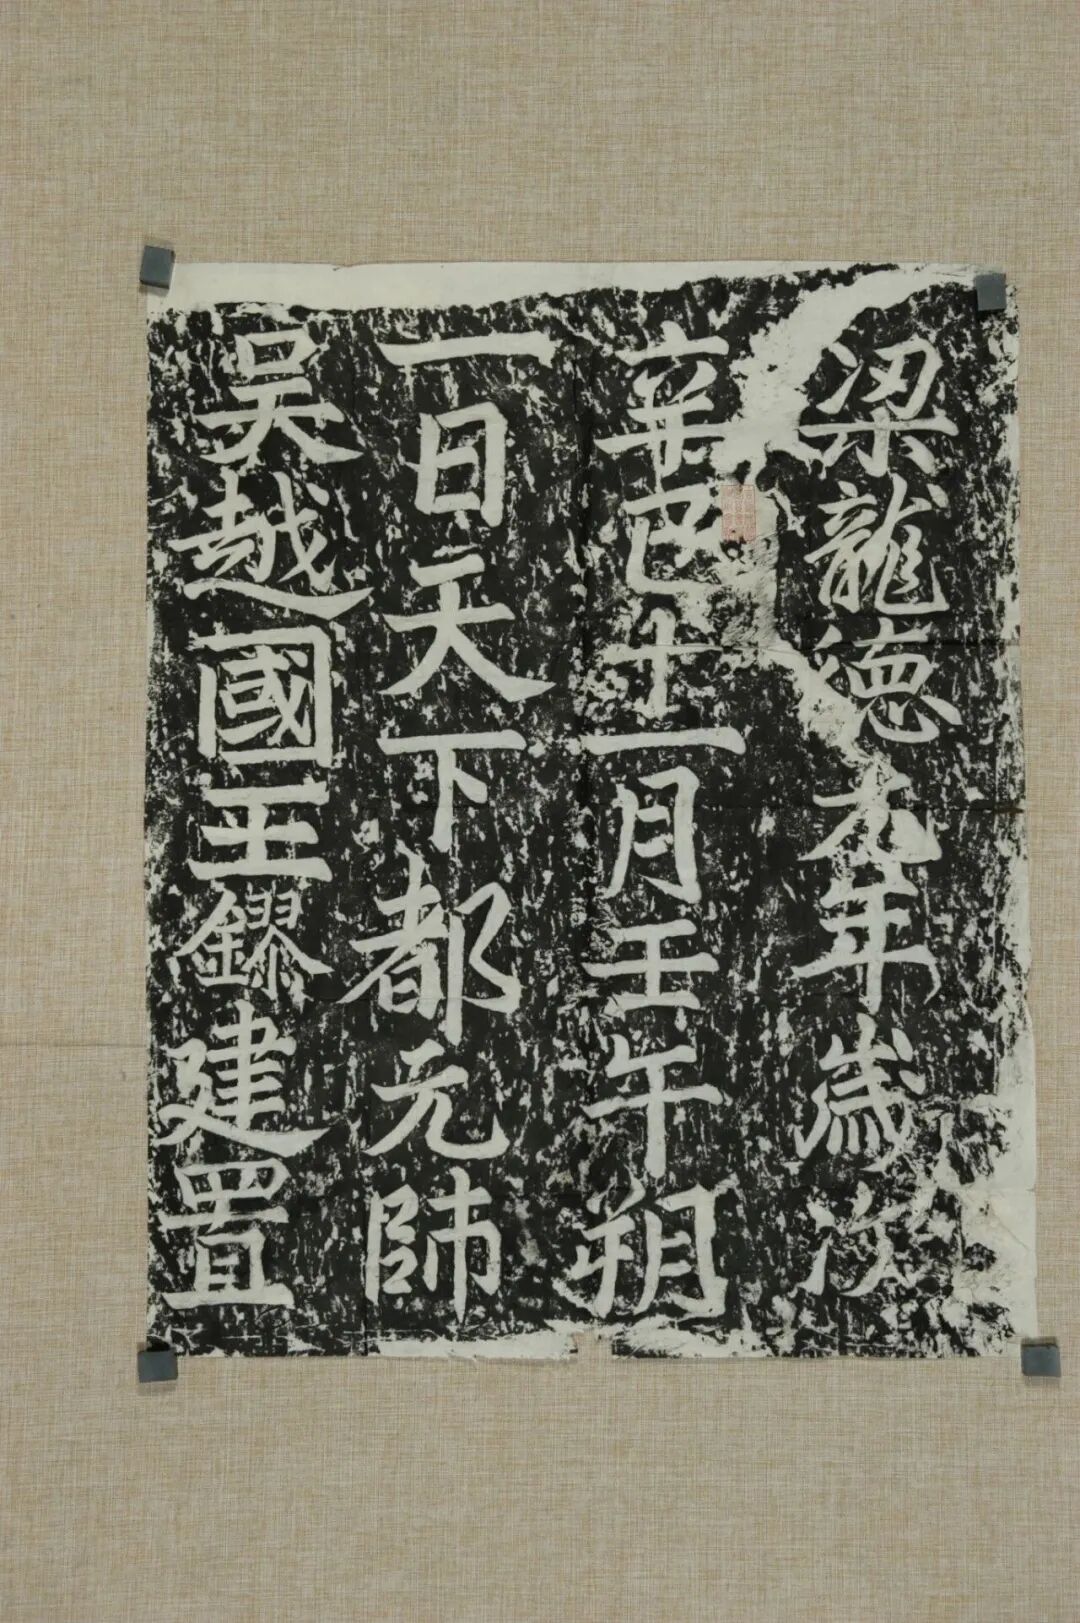 梁龍德元年歲次
辛巳十一月壬午朔
一日天下都元帥
吳越國王鏐建置